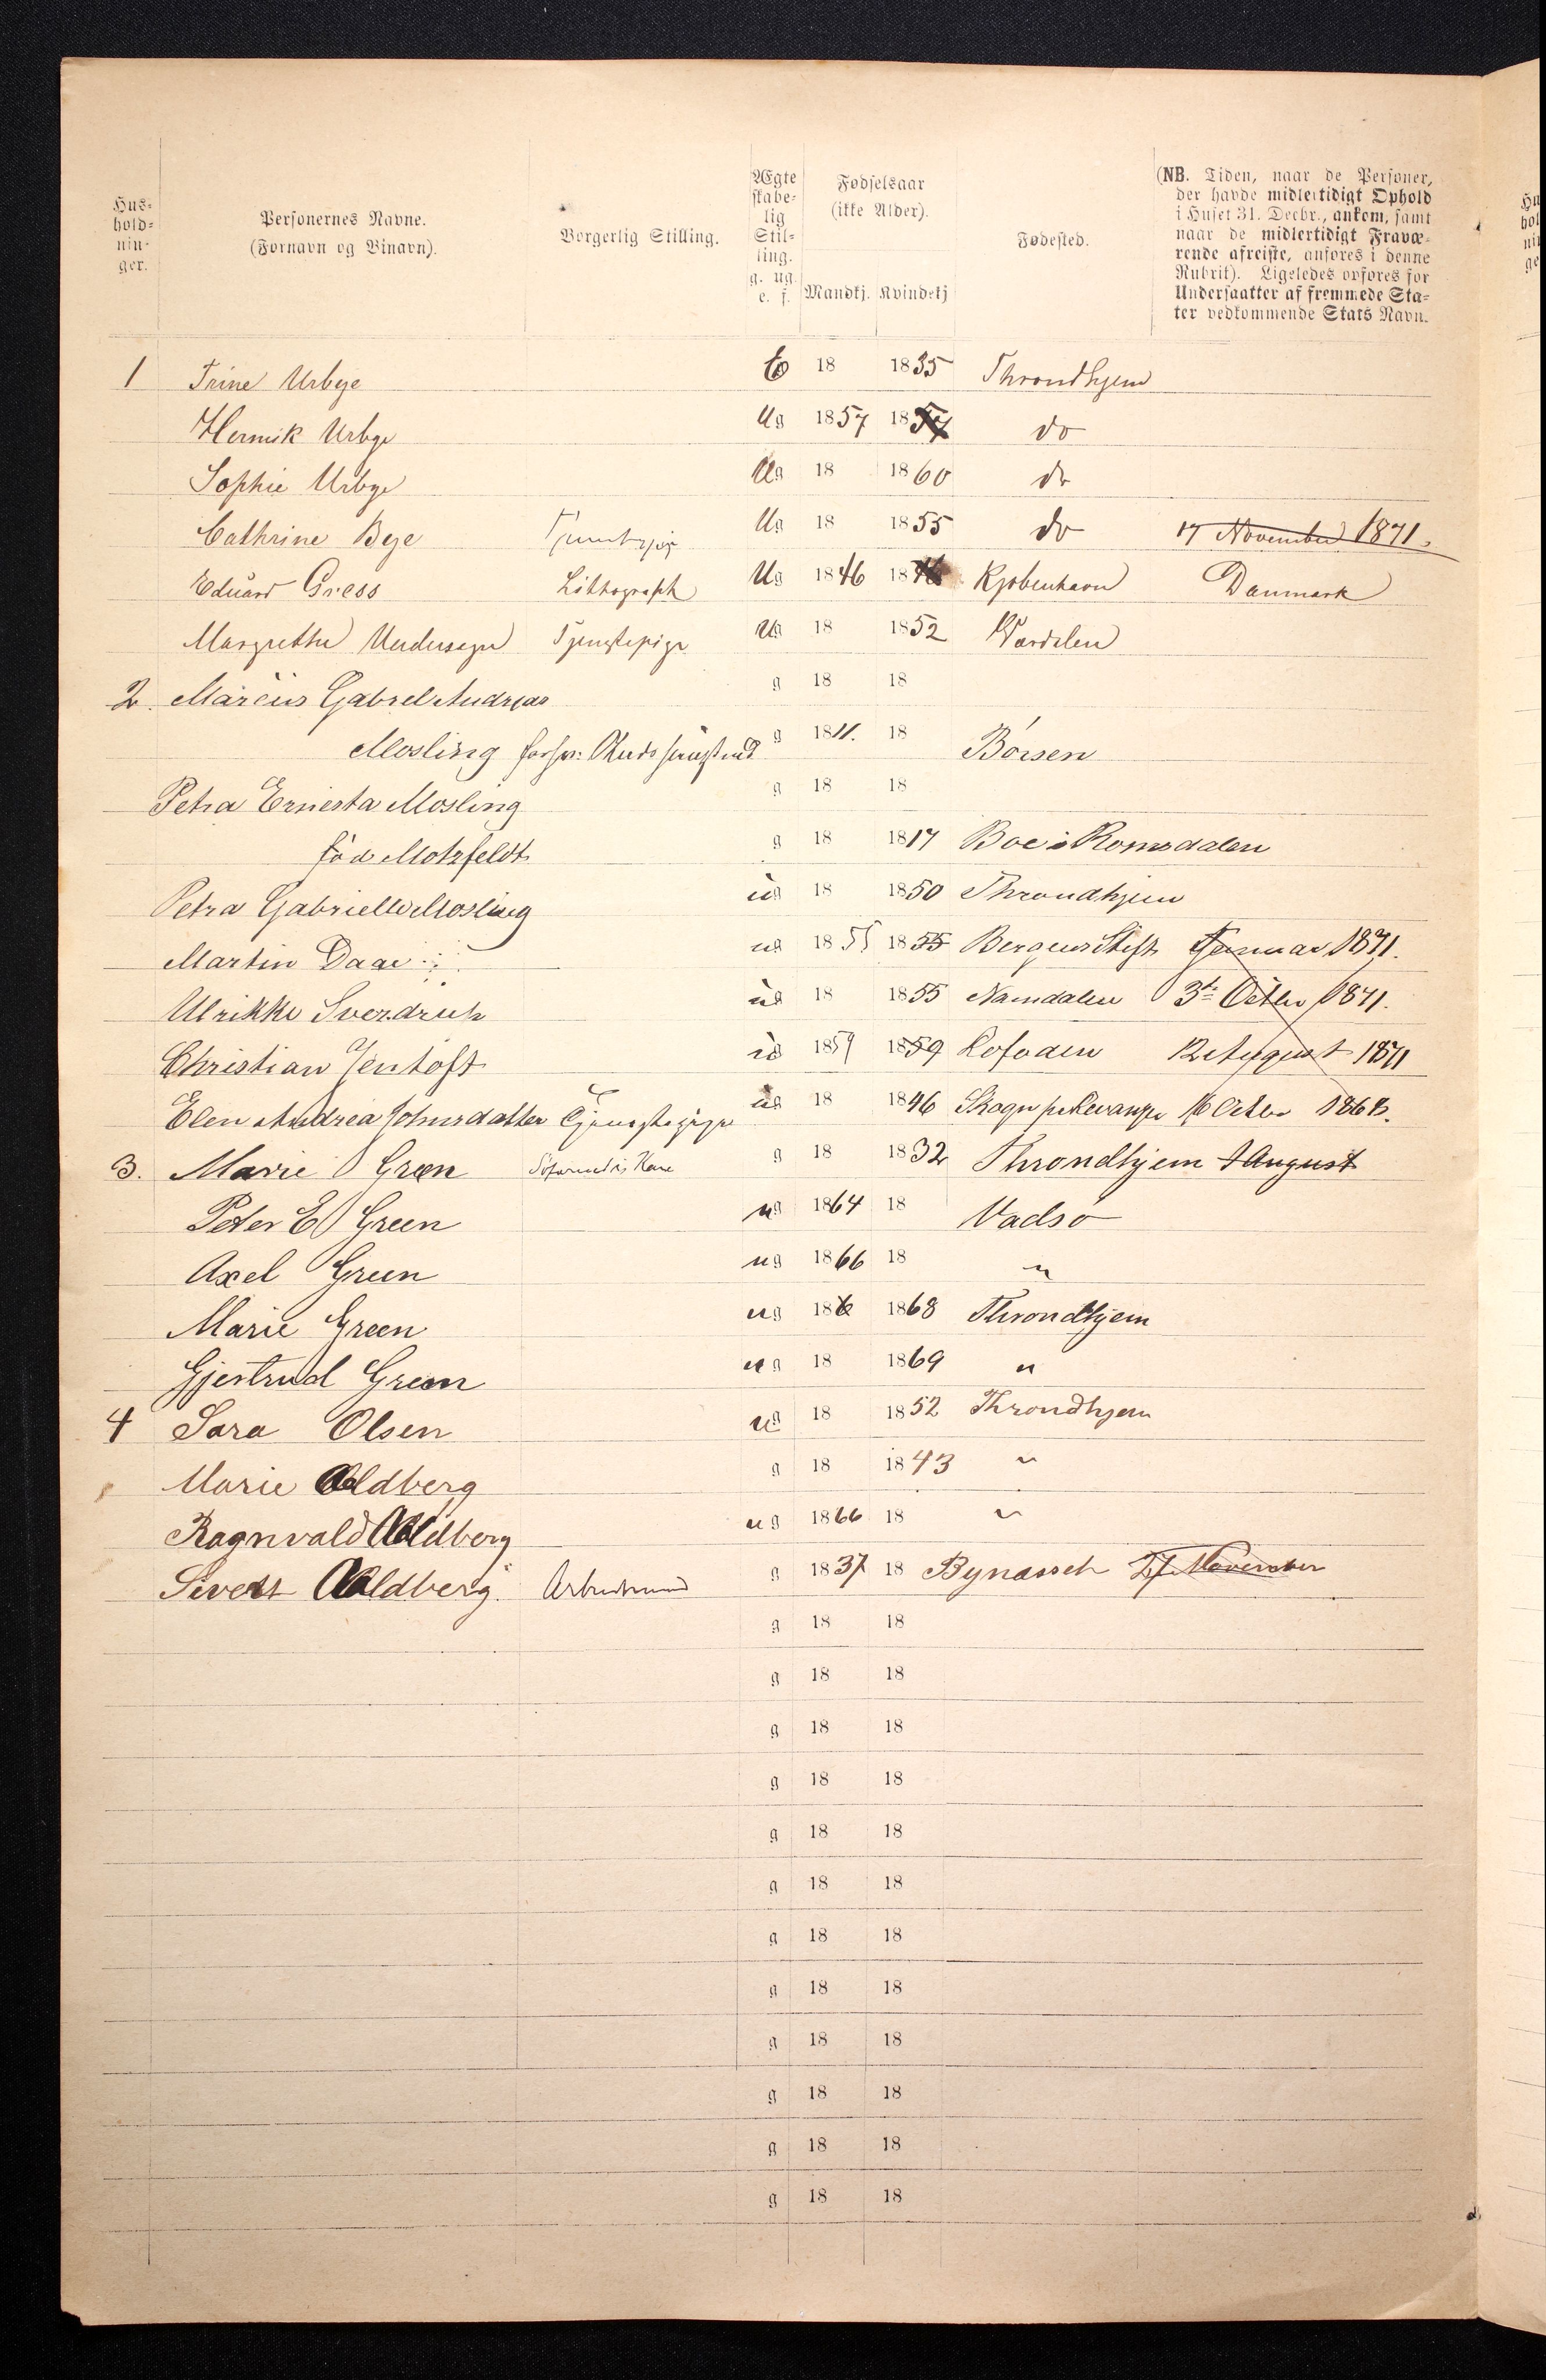 Hus-
hold-
nin-
ger.
Personernes Navne.
(Fornavn og Binavn).
Borgerlig Stilling.
Ægte
skabe-
lig
Stil-
ling.
g. ug.
e. f.
Fødselsaar
(ikke Alder).
Mandkj. Kvindekj
Fødested.
(NB. Tiden, naar de Personer,
der havde midlertidigt Ophold
i Huset 31. Decbr., ankom, samt
naar de midlertidigt Fravæ-
rende afreiste, anføres i denne
Rubrik). Ligeledes opføres for
Undersaatter af fremmede Sta-
ter vedkommende Stats Navn.
1 Trine Urbye e 18 1835 Throndhjem
Hermik Urbye Ug 1857 1857 do
Sophie Urbye Ug 18 1860 do
Cathrine Bye Ug 18 1855 do 17 November 1871.
Eduard Gress Lithograph Ug 1846 1846 Kjøbenhavn Danmark
Margrethe Tjenstepige Ug 18 1852 Værdalen
2. Marcus Gabriel Andreas g 18 18
Mosling g 1811. 18 Børsen
Petra Ernesta Mosling g 18 18
fød Motzfeldt g 18 1817 Boe i Romsdalen
Petra Gabrielle Mosling ug 18 1850 Throndhjem
Martin Daae ug 1855 1855 Bergens Stift Januar 1871.
Ulrikke Sverdrup ug 18 1855 Namdalen 3d Octbr 1871.
Christian Jentoft ug 1859 1859 Lofoden 12 August 1871
Elen Andrea Johnsdatter Tjenstepige ug 18 1846 Skogn 16 Octbr 1868.
3. Marie Green Kone g 18 1832 Throndhjem 1 August
Peter E Green ug 1864 18 Vadsø
Axel Green ug 1866 18 "
Marie Green ug 186 1868 Throndhjem
Gjertrud Green ug 18 1869 "
4 Sara Olsen ug 18 1852 Throndhjem
Marie Aldberg g 18 1843 "
Ragnvald Aldberg ug 1866 18 "
Sivert Aldberg. Arbeidsmand g 1837 18 Bynæsset 27 November
g 18 18
g 18 18
g 18 18
g 18 18
g 18 18
g 18 18
g 18 18
g 18 18
g 18 18
g 18 18
g 18 18
g 18 18